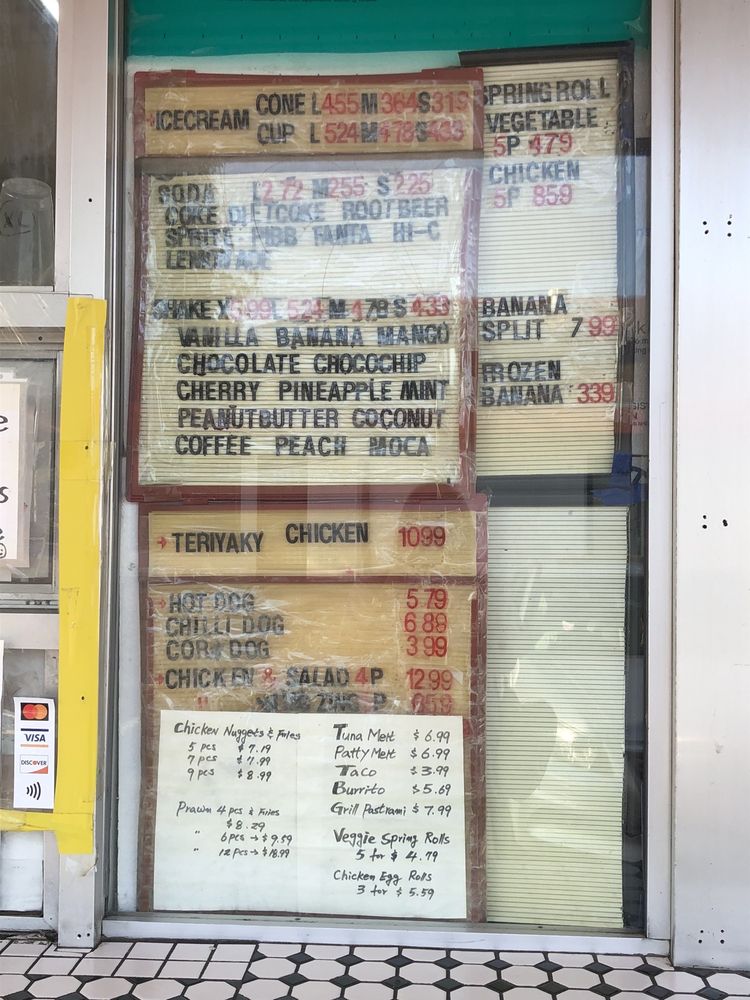 ICECREAM
CONE L 455 M 364 S 319
CUP L 524 M 478 S 433
SODA L 2.72 M 255 S 225
COKE DIETCOKE ROOTBEER
SPRITE FANTA HI-C
LEMONADE
SHAKE L 524 M 478 S 433
VANILLA BANANA MANGO
CHOCOLATE CHOCOCHIP
CHERRY PINEAPPLE MINT
PEANUTBUTTER COCONUT
COFFEE PEACH MOCA
SPRING ROLL
VEGETABLE
5P 479
CHICKEN
5P 859
BANANA
SPLIT 7 99
FROZEN
BANANA 339
TERIYAKY CHICKEN 1099
HOT DOG 5 79
CHILLI DOG 6 89
CORN DOG 3 99
CHICKEN & SALAD 4 P 12 99
Chicken Nuggets & Fries
5 pcs $ 7.19
7 pcs $ 7.99
9 pcs $ 8.99
Prawn 4 pcs & Fries
$ 8.29
" 6 pcs → $ 9.59
" 12 pcs → $ 18.99
Tuna Melt $ 6.99
Patty Melt $ 6.99
Taco $ 3.99
Burrito $ 5.69
Grill Pastrami $ 7.99
Veggie Spring Rolls
5 for $ 4.79
Chicken Egg Rolls
3 for $ 5.59
VISA
DISCOVER